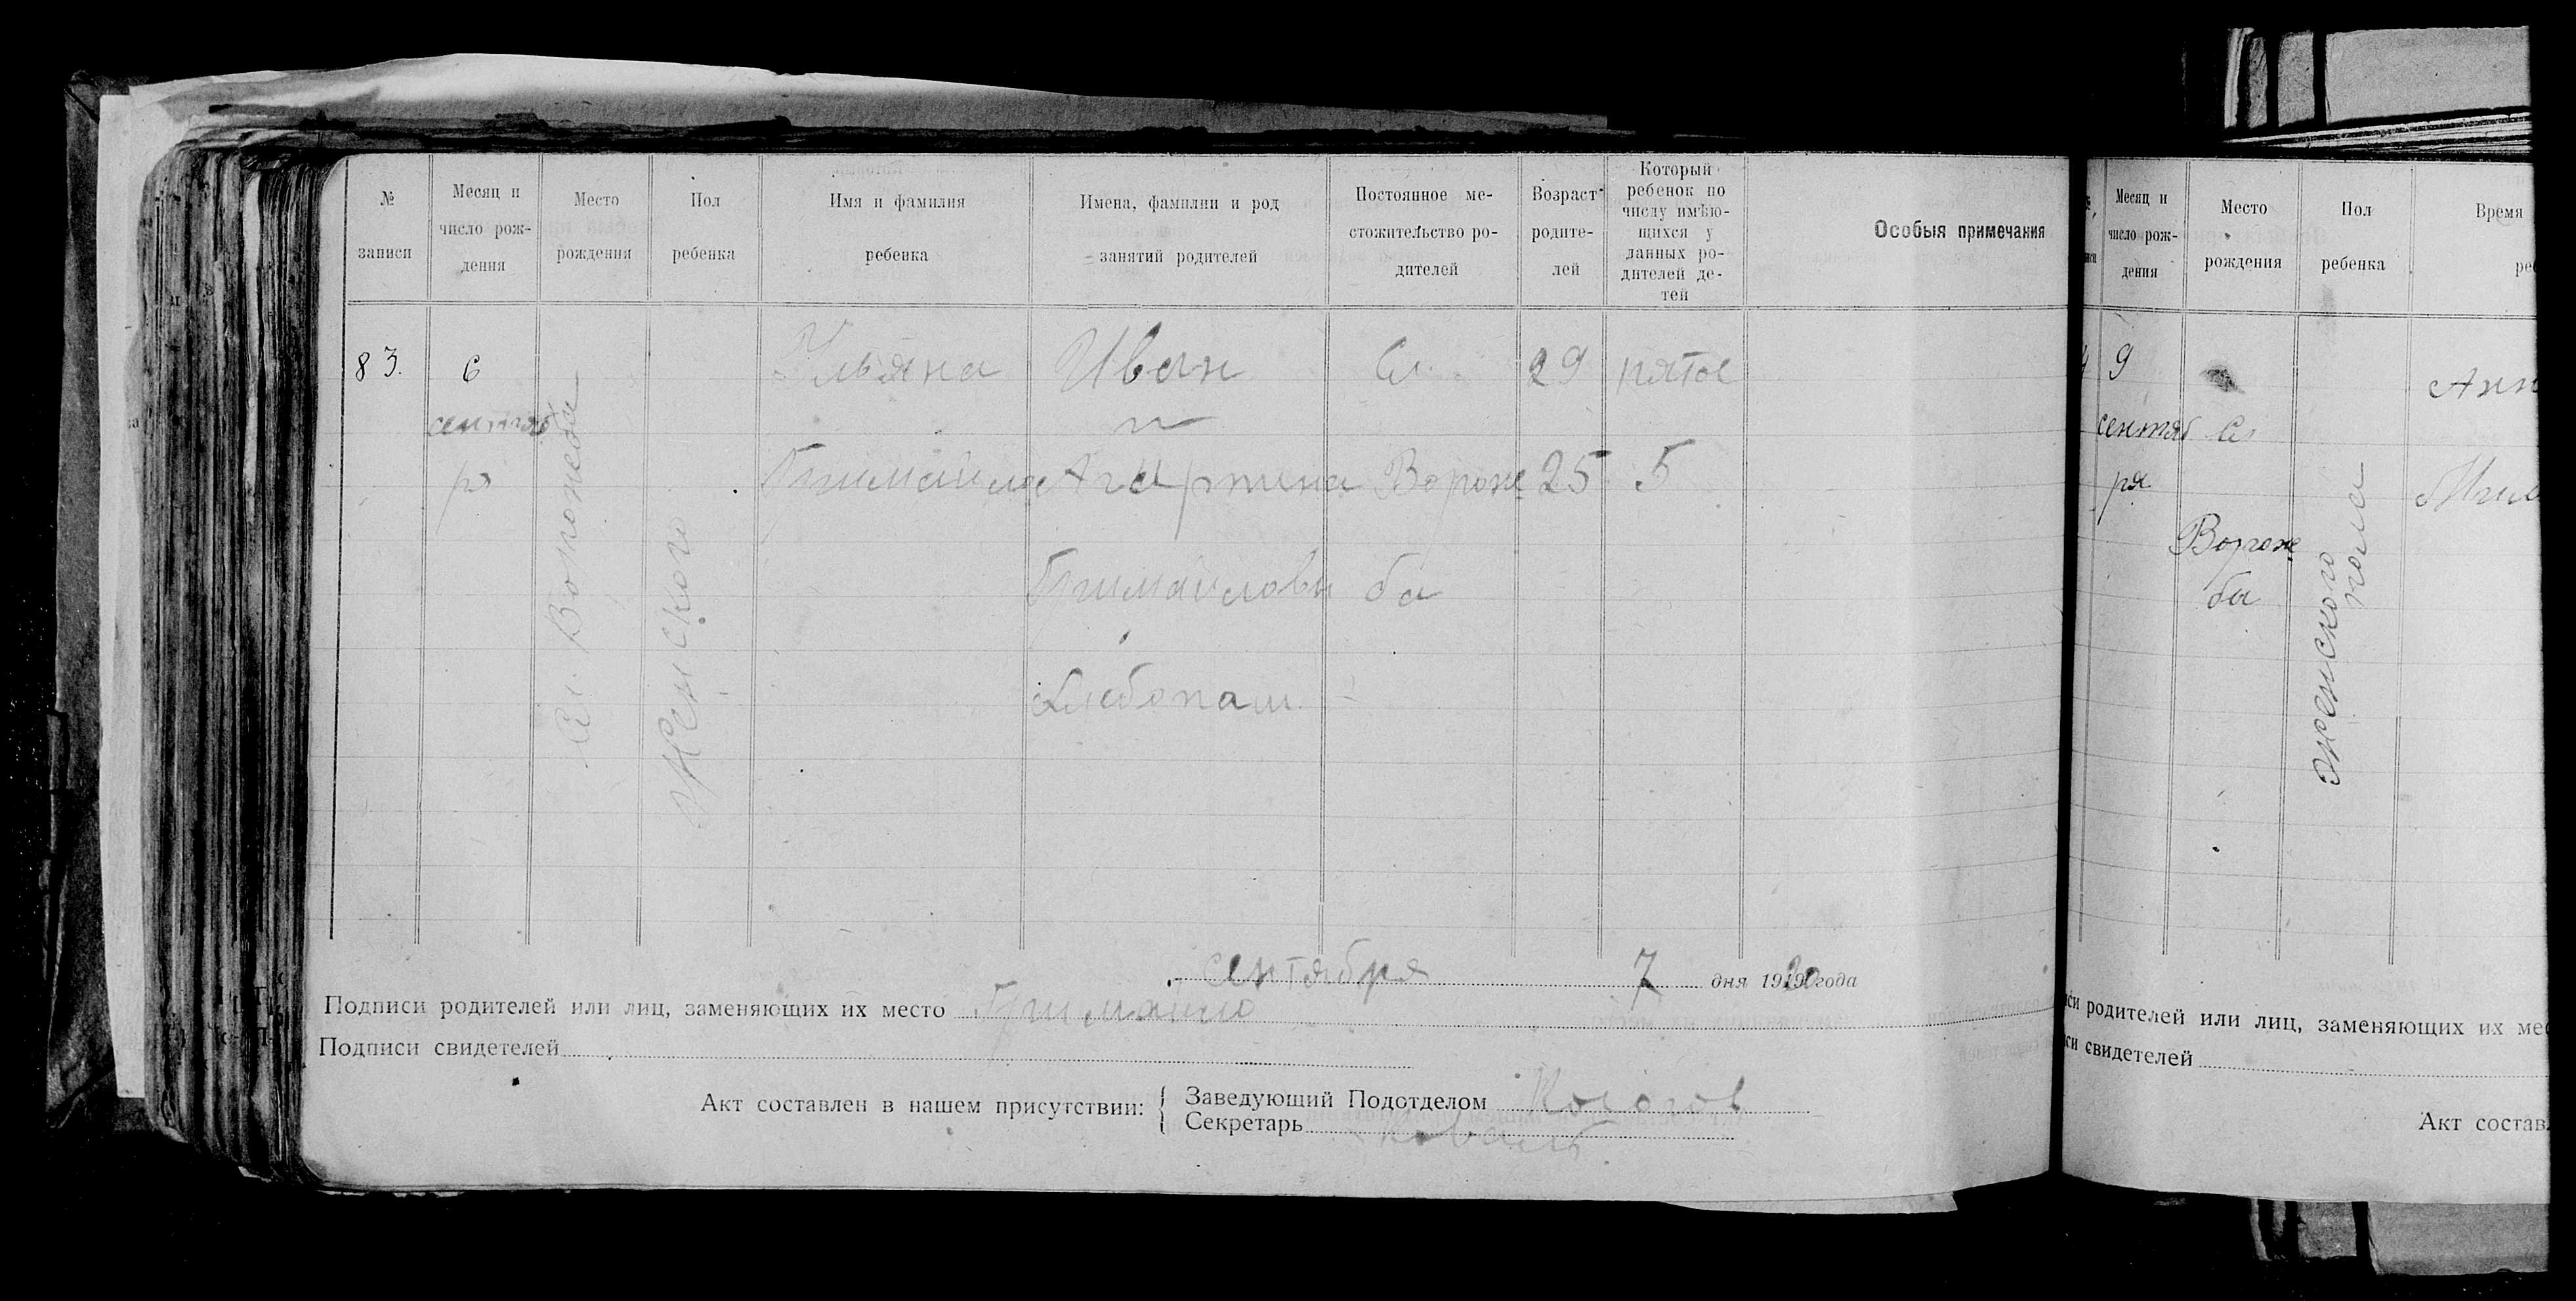 № записи
Месяц и число рождения
Место рождения
Пол ребенка
Имя и фамилия ребенка
Имена, фамилии и род занятий родителей
Постоянное местожительство родителей
Возраст родителей
Который ребенок по числу имѣющихся у данных родителей детей
Особыя примечания
83.
6 сентяб
ря
Сл.Воронеба
Женского
Ульяна
Иван Сл. 29 пятое
и
Агарпина Вороне 25 5
Гримайловы ба
Хлебопаш.
сентября 7 дня 1920 года
Подписи родителей или лиц, заменяющих их место Гримайло
Подписи свидетелей
Акт составлен в нашем присутствии:
Заведующий Подотделом
Секретарь Коваль
Месяц и число рождения
Место рождения
Пол ребенка
Время
9
сентяб
ря
Сл
Вороне
ба
женского
пола
Анн
си родителей или лиц, заменяющих их мес
си свидетелей
Акт состав